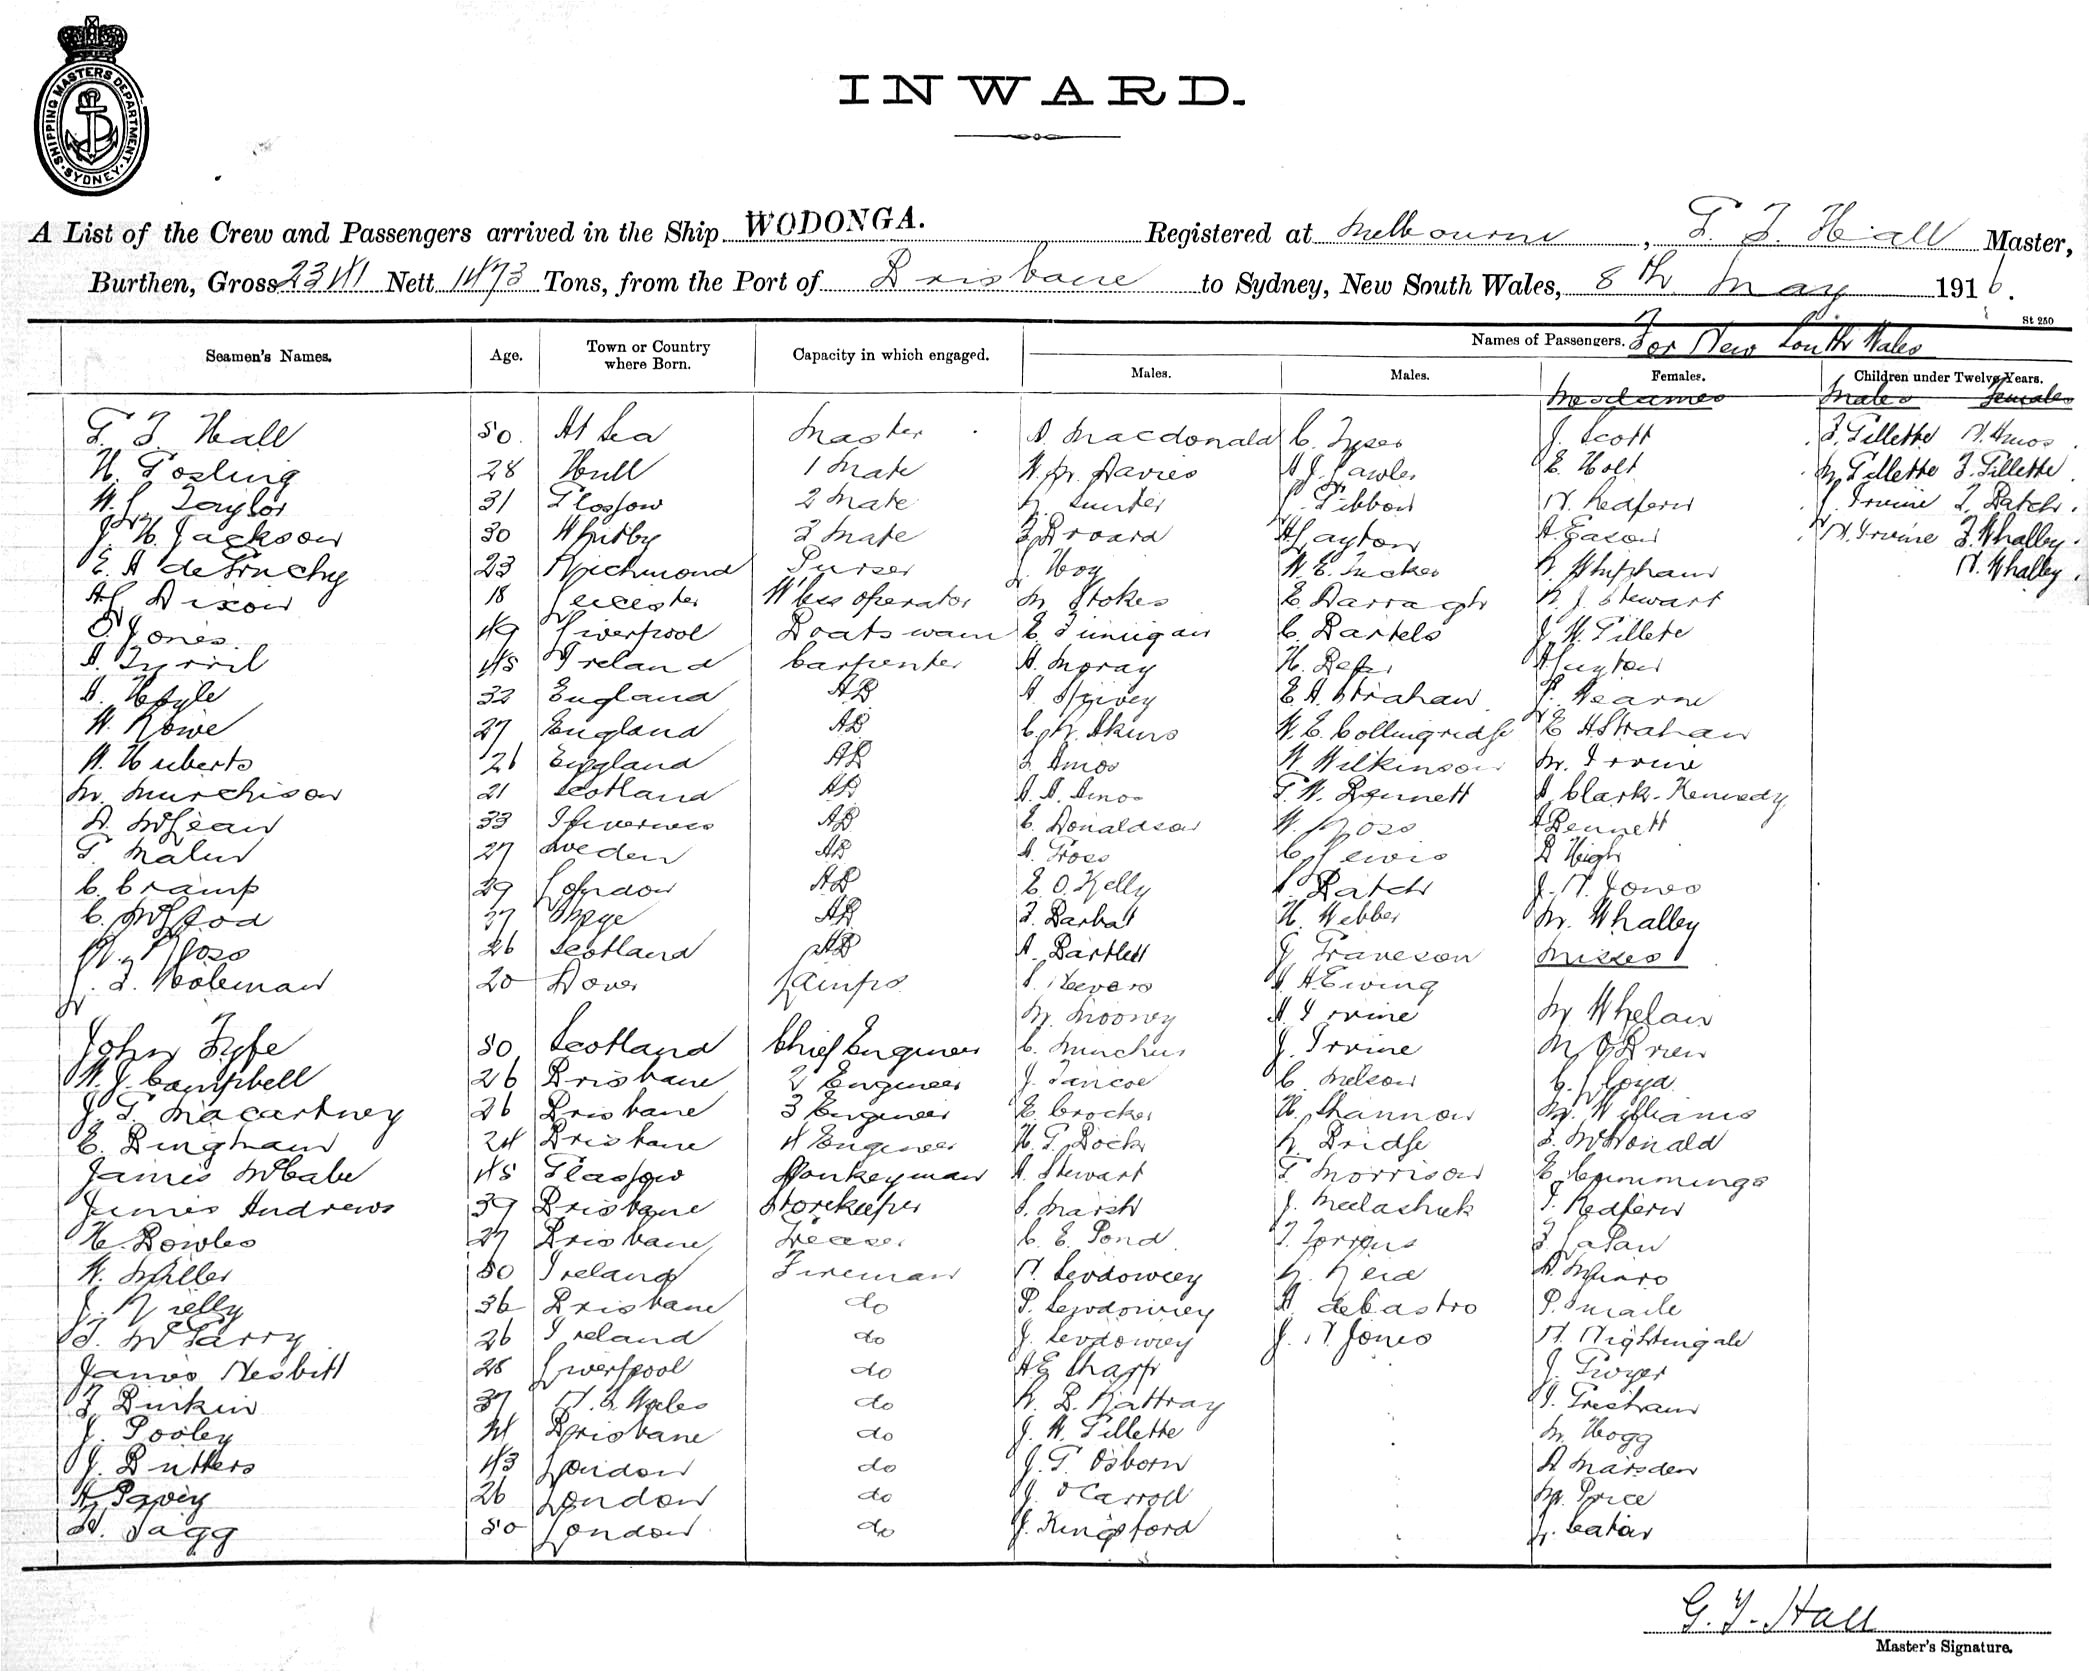 SHIPPING MASTERS DEPARTMENT · SYDNEY ·
INWARD.
A List of the Crew and Passengers arrived in the Ship WODONGA. Registered at Melbourne, G. T. Hall Master,
Burthen, Gross 2341 Nett 1473 Tons, from the Port of Brisbane to Sydney, New South Wales, 8th May 1916.
St 250
Seamen's Names. Age. Town or Country where Born. Capacity in which engaged. Names of Passengers. For New South Wales
Males. Males. Females. Children under Twelve Years.
Mesdames Males Females
G. T. Hall 50. At Sea Master A. Macdonald C. Tyser J. Scott F. Gillette N. Amos
H. Gosling 28 Hull 1 Mate W. M. Davies A. J. Lawler E. Holt M. Gillette F. Gillette
W. L. Taylor 31 Glasgow 2 Mate R. Hunter L. Gibbon N. Redfern J. Irvine T. Batch.
J. H. Jackson 30 Whitby 3 Mate F. Broard A Layton A. Eason N. Irvine F. Whalley.
E. A deGruchy 23 Richmond Purser J. Hoy W. E. Tucker R. Whipham N. Whalley.
A L Dixon 18 Leicester W'less operator M. Stokes E. Darragh R. J. Stewart
O. Jones. 49 Liverpool Boatswain E. Finnigan C. Bartels J. W. Gillete
A. Tyrril 45 Ireland Carpenter A. Moray H. A Layton
A. Hoyle 32 England AB A. Spivey E. A. Strahan. P. Hearne
W. Rowe 27 England AB C. R. Akins W. E. Collingridge E A Strahan
W. Huberts 26 England AB L. Amos W. Wilkinson M. Irvine
M. Murchison 21 Scotland AB A. A. Amos G. W. Bennett A. Clark-Kennedy
D. McLean 33 Inverness AB E. Donaldson W. Ross A Bennett
G. Malm 27 Sweden AB A. Gross C. Lewis D High
C. Cramp 29 London AB E. O. Kelly L. Batch J. N. Jones
C. McLeod 37 Skye AB F. Barbat H. Webber M. Whalley
W. Ross 26 Scotland AB A. Bartlett J. Graveson Misses
L. F. Coleman 20 Dover Lamps S. Reevers A. A Ewing
M. Mooney A. Irvine M. Whelan
John Fyfe 50 Scotland Chief Engineer C. Minchin J. Irvine M. O'Brien
W. J. Campbell 26 Brisbane 2 Engineer J. Tancoe C. Nelson G. Lloyd
J. G. Macartney 26 Brisbane 3 Engineer E. Crocker H. Shannon M. Williams
E. Bingham 24 Brisbane 4 Engineer H. G. Dock R. Bridge F. McDonald
James McCabe 45 Glasgow Donkeyman A. Stewart G. Morrison E. Cummings
James Andrews 39 Brisbane Storekeeper S. Marsh J. P. Redfern
H. Bowles 27 Brisbane Greaser C. E. Pond T. Torrens F. Lapan
W. Miller 50 Ireland Fireman N. Sevdowcey R. Reid A. Munro
J. Rielly 36 Brisbane do P. Sevdowcey A. deCastro P. Smaile
T. McGarry 26 Ireland do J. Sevdowcey J. N Jones N. Nightingale
James Nesbitt 28 Liverpool do A E Sharp J. Troyer
F. Durkin 37 N. S. Wales do R. B. Rattray I. Tristram
J. Pooley 24 Brisbane do J. W. Gillette M. Hogg
J. Butters 43 London do J. G. Osborn A Marsden
A. Pavey 26 London do J. O'Carroll M. Price
H. Tagg 50 London do J. Kingsford L. Eaton
G. T. Hall
Master's Signature.